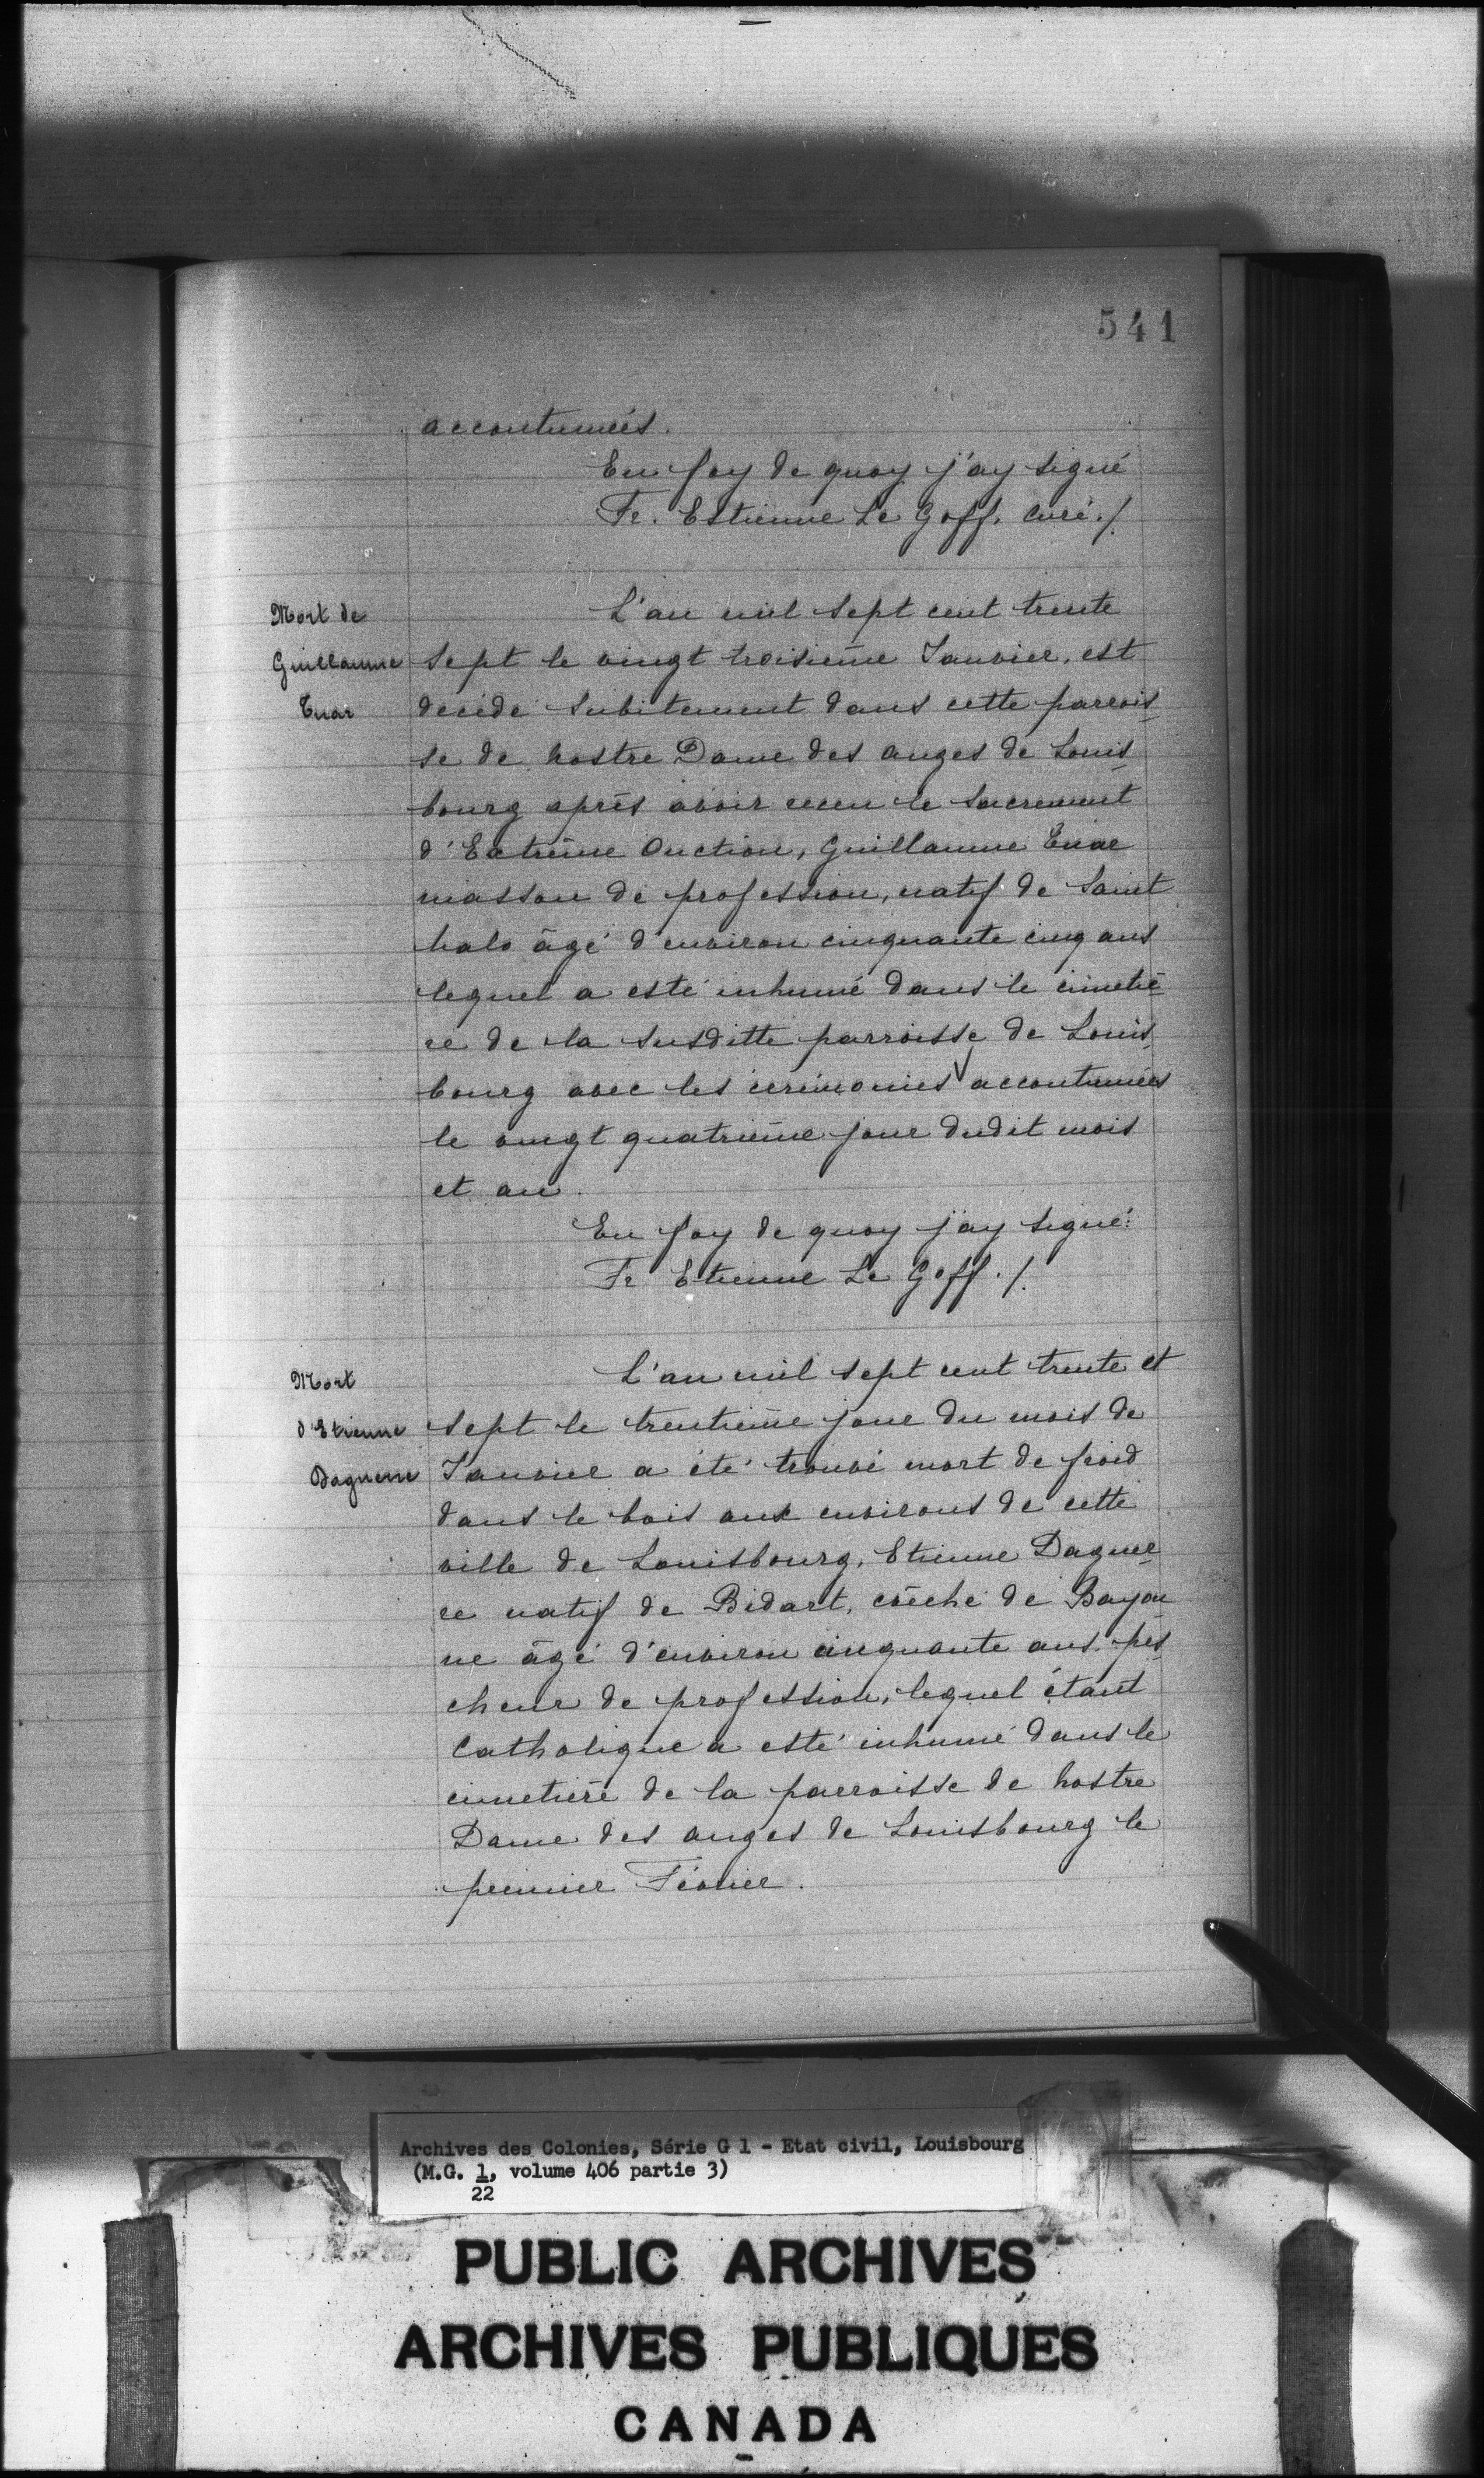 541
accoutumées.
En foy de quoy j'ay signé
Fr. Estienne Le Goff. Curé./.
Mort de
Guillaume
Enar
L'an mil sept cent trente
sept le vingt troisième Janvier, est
décédé subitement dans cette parrois-
se de nostre Dame des anges de Louis-
bourg après avoir receu le sacrement
d'Extrême Onction, Guillaume Enar
masson de profession, natif de Saint
Malo âgé d'environ cinquante cinq ans
lequel a esté inhumé dans le cimetiè-
re de la susditte parroisse de Louis-
bourg avec les cérémonies accoutumées
le vingt quatrième jour dudit mois
et an.
En foy de quoy j'ay signé:
Fr Etienne Le Goff./.
Mort
d'Etienne
Daguerre
L'an mil sept cent trente et
sept le trentième jour du mois de
Janvier a été trouvé mort de froid
dans le bois aux environs de cette
ville de Louisbourg, Etienne Daguer-
re natif de Bidart, evêché de Bayon-
ne âgé d'environ cinquante ans, pès-
cheur de profession, lequel étant
Catholique a esté inhumé dans le
cimetière de la parroisse de nostre
Dame des anges de Louisbourg le
premier Février.
Archives des Colonies, Série G 1 - Etat civil, Louisbourg
(M.G. 1, volume 406 partie 3)
22
PUBLIC ARCHIVES
ARCHIVES PUBLIQUES
CANADA